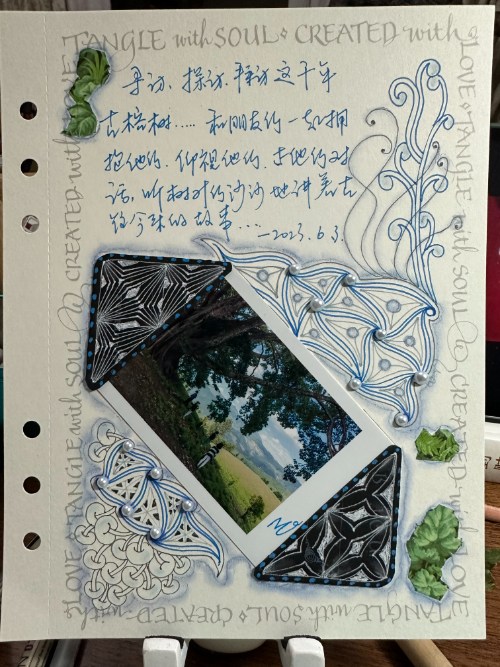 TANGLE with SOUL ⋄ CREATED with
LOVE ⋄ TANGLE with SOUL CREATED with LOVE
寻访、探访、拜访这千年
古榕树..... 和朋友们一起拥
抱他们、仰视他们、与他们对
话、听树叶的沙沙地讲着古
往今来的故事....
—2023.6.3.
LOVE ⋄ TANGLE with SOUL CREATED with LOVE
TANGLE with SOUL ⋄ CREATED with